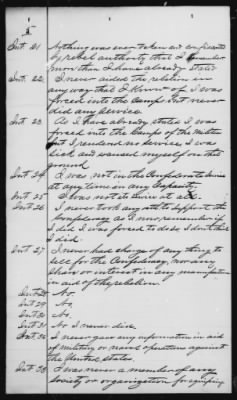 5
Int. 21 Nothing was ever taken and confiscated
by rebel authority that I remember
more than I have already stated
Int. 22 I never aided the rebelion in
any way that I know of I was
forced into the Camps but never
did any service.
Int. 23 As I have already stated I was
forced into the Camps of the Militia
but I rendered no service. I was
sick and excused myself on that
ground
Int. 24 I was not in the Confederate service
at any time or any Capacity.
Int. 25 I was not at
Int. 26 I never took any oath to support the
Confederacy as I now remember if
I did I was forced to do so I don't think
I did.
Int. 27 I never had charge of any thing to
sell for the Confederacy, nor any
share or interest in any
in aid of the rebelion.
Int. 28 No.
Int. 29 No.
Int. 30 No.
Int. 31 No I never did.
Int. 32 I never gave any information in aid
of military or naval operations against
the United States.
Int. 33 I was never a member of any
society or organization for